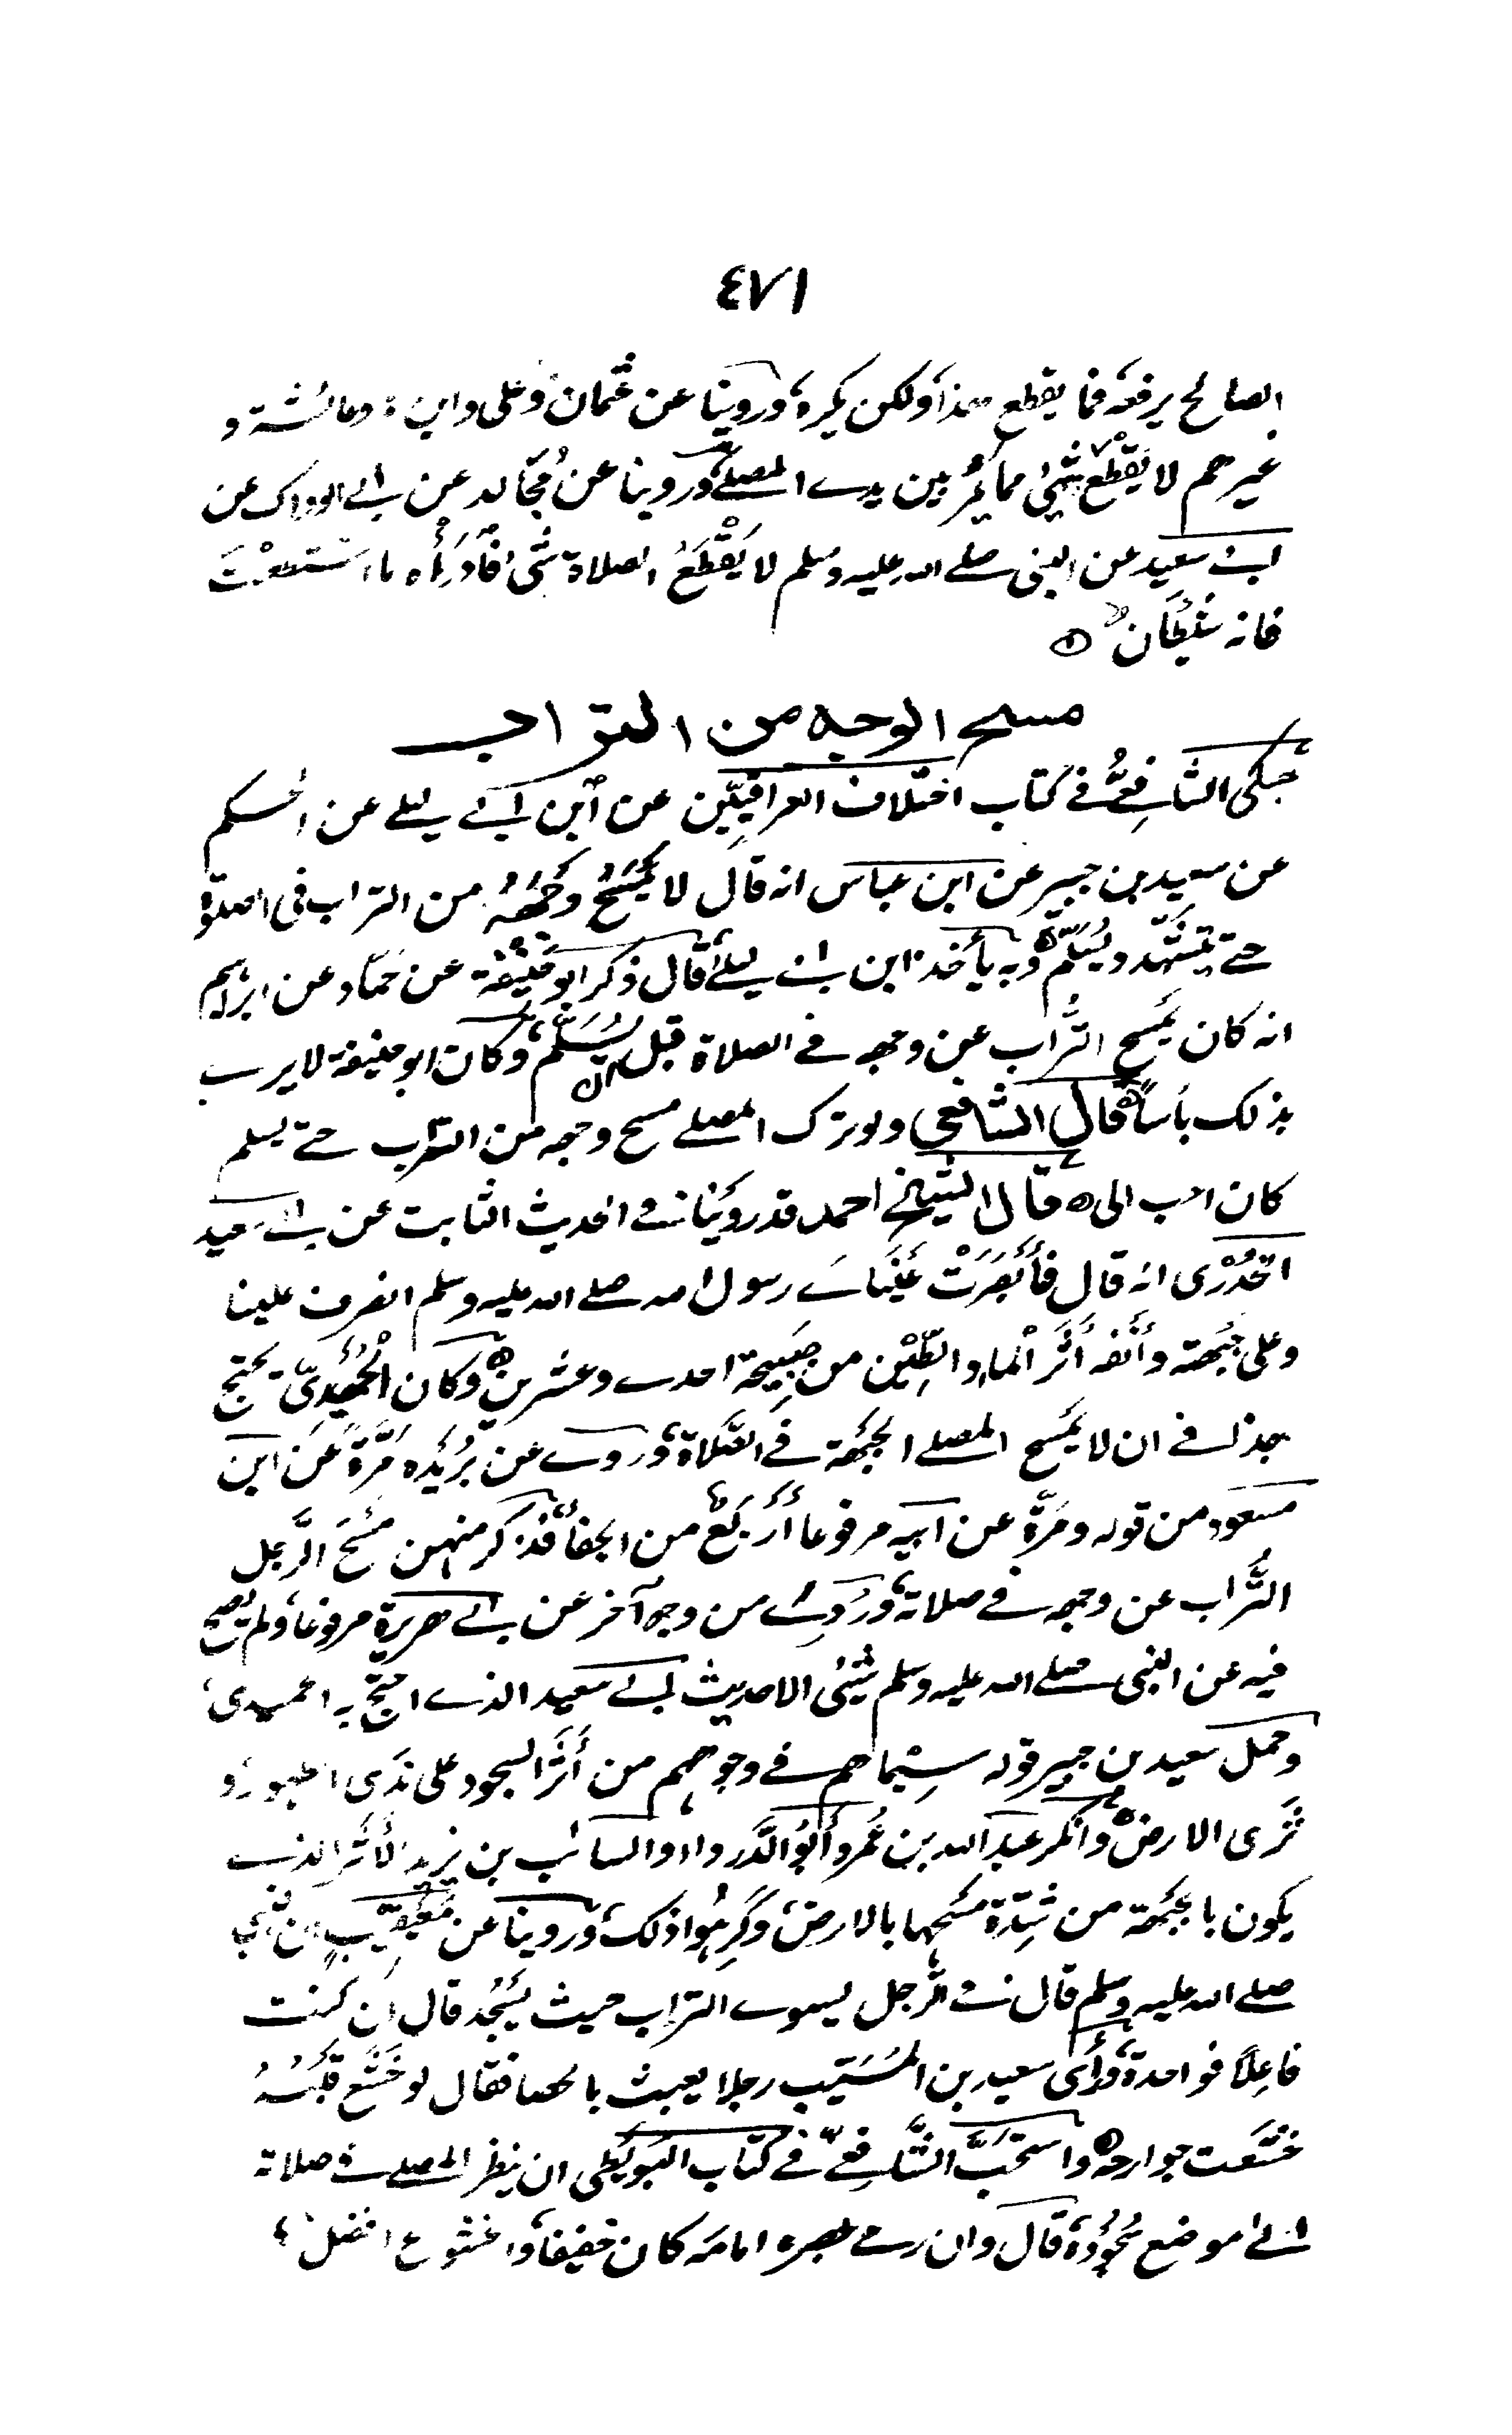 ٤٧١
الصالح يرفعه فما يقطع هذا ولكن يكره ورُوِّينا عن عُثمان وعلى وابن وعائشة و
غيرهم لا يَقْطَعُ شيئٌ مما يَمُرُّ بين يدى المصلى وروينا عن مُجَالد عن ابى الوداك عن
ابى سعيد عن النبى صلى الله عليه وسلم لا يَقْطَعُ الصلاة شَىءٌ فَادْرَأُه ما استَطَعْتَ
فانه شَيْطَان
مسح الوجه من التراب
حَكَى الشافِعىُّ فى كتاب اختلاف العراقِيِّين عن ابن ابى ليلى عن الحكم
عن سعيد بن جبير عن ابن عباس انه قال لا يَمْسَحُ وَجْهَهُ من التراب فى الصلوة
حتى يَتَشَهَّد ويُسَلِّم وبه يأخذ ابن ابى ليلى قال ذكر ابو حَنِيْفَة عن حَمّاد عن ابراهيم
انه كان يَمْسَح التُّراب عن وجهه فى الصلاة قبل ان يُسَلِّم وكان ابو حنيفة لا يرى
بذلك بأسًا قال الشافعى ولو ترك المصلى مسح وجهه من التراب حتى يسلم
كان احب الى قال الشيخ احمد قد رُوِّيْنَا فى الحديث الثابت عن ابى سَعيد
الخُدْرِى انه قال فأَبْصَرَتْ عَيْنَاىَ رسول الله صلى الله عليه وسلم انصرف علينا
وعلى جَبْهَته وأَنْفه أَثَر الْماء والطِّيْن من صَبِيْحة احدى وعشرين وكان الْحُمَيْدىّ يحتج
بهذا فى ان لا يَمْسح المصلى الجَبْهَة فى الصَّلاة ورُوى عن بُرَيْدَه مَرَّةً عَن ابن
مَسْعود من قوله ومَرَّةً عن ابيه مرفوعا أَرْبَعٌ من الجفاء فذكر منهن مَسْحَ الرَّجل
التُّراب عن وجهه فى صلاته ورُوِى من وجه آخر عن ابى هريرة مرفوعا ولم يَصِح
فيه عن النبى صلى الله عليه وسلم شَيْئٌ الا حديث ابى سعيد الذى احتَجَّ به الحميدى
وحمل سعيد بن جبير قوله سِيْماهم فى وجوههم من أَثَر السجود على نَدَى الطهور و
ثَرَى الارض وانكر عبد الله بن عُمَر وأَبُو الدَّرداء والسائب بن يزيد الأَثَر الذى
يكون بالجَبْهَة من شِدّة مَسْحِها بالارض وكَرِهُوا ذلك وروينا عن مُعَيْقِيْب عن النبى
صلى الله عليه وسلم قال فى الرَّجل يسوى التراب حيث يَسْجُد قال ان كنت
فاعِلاً فواحدة ورَأَى سعيد بن المُسَيَّب رجلا يعبث بالحصا فقال لو خَشَع قَلْبُهُ
خَشَعت جوارحه واستَحَبَّ الشّافِعىّ فى كتاب البُوَيْطى ان ينظر المصلى فى صلاته
الى موضع سُجُوْدِه قال وان رمى بصره امامَه كان خفيفا والخشوع افضل